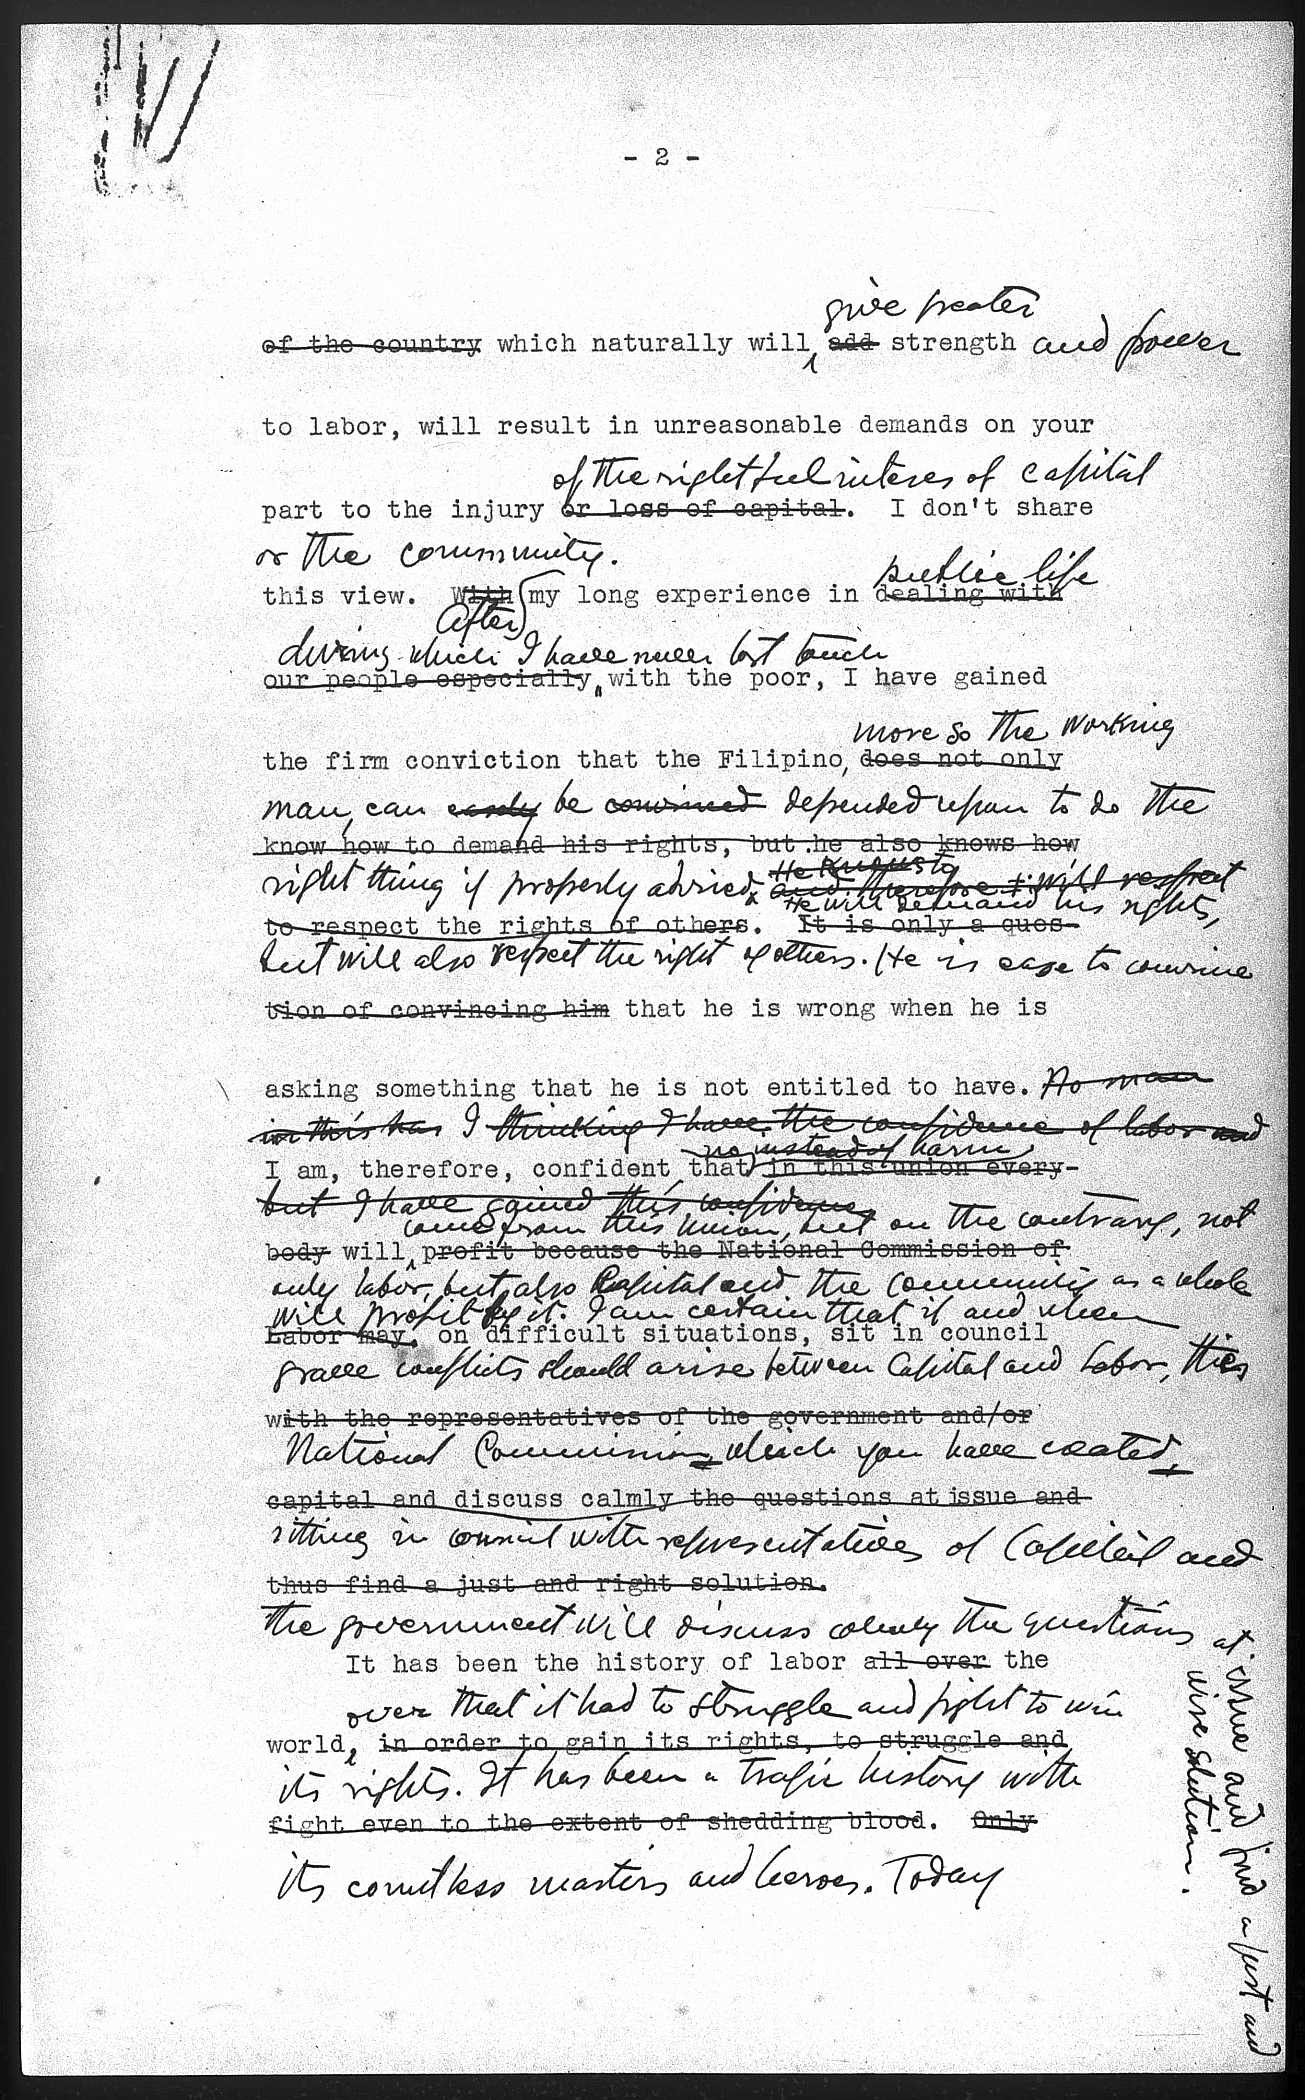 - 2 -
give greater
of the country which naturally will add strength and power
to labor, will result in unreasonable demands on your
of the rightful interes of capital
part to the injury or loss of capital. I don't share
or the community.
public life
this view. With my long experience in dealing with
After
during which I have never lost touch
our people especially, with the poor, I have gained
more so the working
the firm conviction that the Filipino, does not only
man, can easely be convinced depended upon to do the
know how to demand his rights, but he also knows how
He knows to
right thing if properly advised, and therefore will respect
He will demand his rights,
to respect the rights of others. It is only a ques-
but will also respect the right of others. He is ease to convince
tion of convincing him that he is wrong when he is
asking something that he is not entitled to have. No man
in this has I thinking I have the confidence of labor and
no instead of harm
I am, therefore, confident that in this union every-
but I have gained this confidence
come from this union, but on the contrary, not
body will profit because the National Commission of
only labor, but also Capital and the community as a whole
will profit by it. I am certain that if and when
Labor may, on difficult situations, sit in council
grave conflicts should arise between Capital and Labor, this
with the representatives of the government and/or
National Commission, which you have created,
capital and discuss calmly the questions at issue and
sitting in council with representatives of Capital and
thus find a just and right solution.
the government will discuss calmly the questions at issue and find a just and
wise solution.
It has been the history of labor all over the
over that it had to struggle and fight to win
world, in order to gain its rights, to struggle and
its rights. It has been a tragic history with
fight even to the extent of shedding blood. Only
its countless martirs and heroes. Today